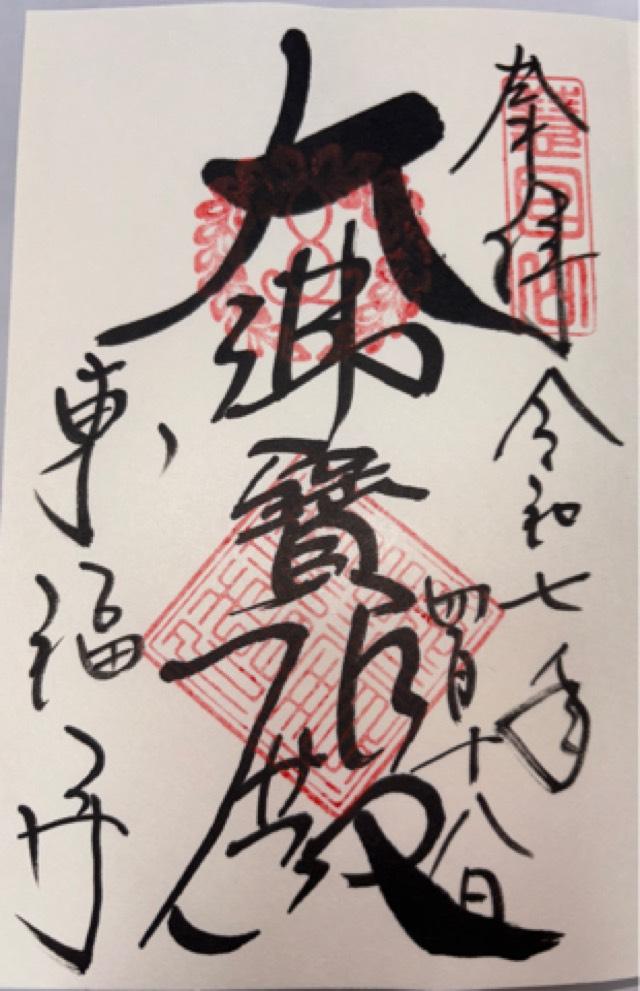 奉拝
令和七年
四月十八日
大佛寳殿
東福寺